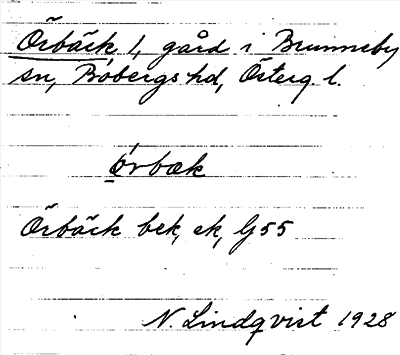 Örbäck 1, gård i Brunneby
sn, Bobergs hd, Österg. l.
Örbäck bek, ek, G 55
N. Lindqvist 1928